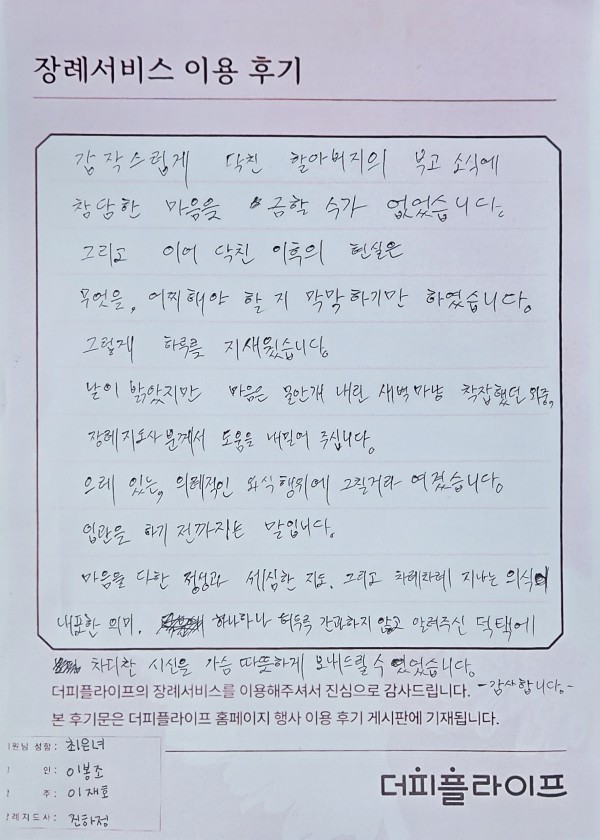 장례서비스 이용 후기
갑작스럽게 닥친 할아버지의 부고 소식에
참담한 마음을 금할 수가 없었습니다.
그리고 이어 닥친 이후의 현실은
무엇을, 어찌해야 할 지 막막하기만 하였습니다.
그렇게 하루를 지새웠습니다.
날이 밝았지만 마음은 물안개 내린 새벽마냥 착잡했던 와중,
장례지도사분께서 도움을 내밀어 주십니다.
으레 있는, 의례적인 의식행위에 그칠거라 여겼습니다.
입관을 하기 전까지는 말입니다.
마음을 다한 정성과 세심한 지도. 그리고 차례차례 지나는 의식의
내포한 의미. 하나하나 허투루 간과하지 않고 알려주신 덕택에
차디찬 시신을 가슴 따뜻하게 보내드릴 수 있었습니다.
더피플라이프의 장례서비스를 이용해주셔서 진심으로 감사드립니다. -감사합니다.-
본 후기문은 더피플라이프 홈페이지 행사 이용 후기 게시판에 기재됩니다.
원님 성함: 최은녀
인: 이봉조
주: 이재호
례지도사: 진하정
더피플라이프